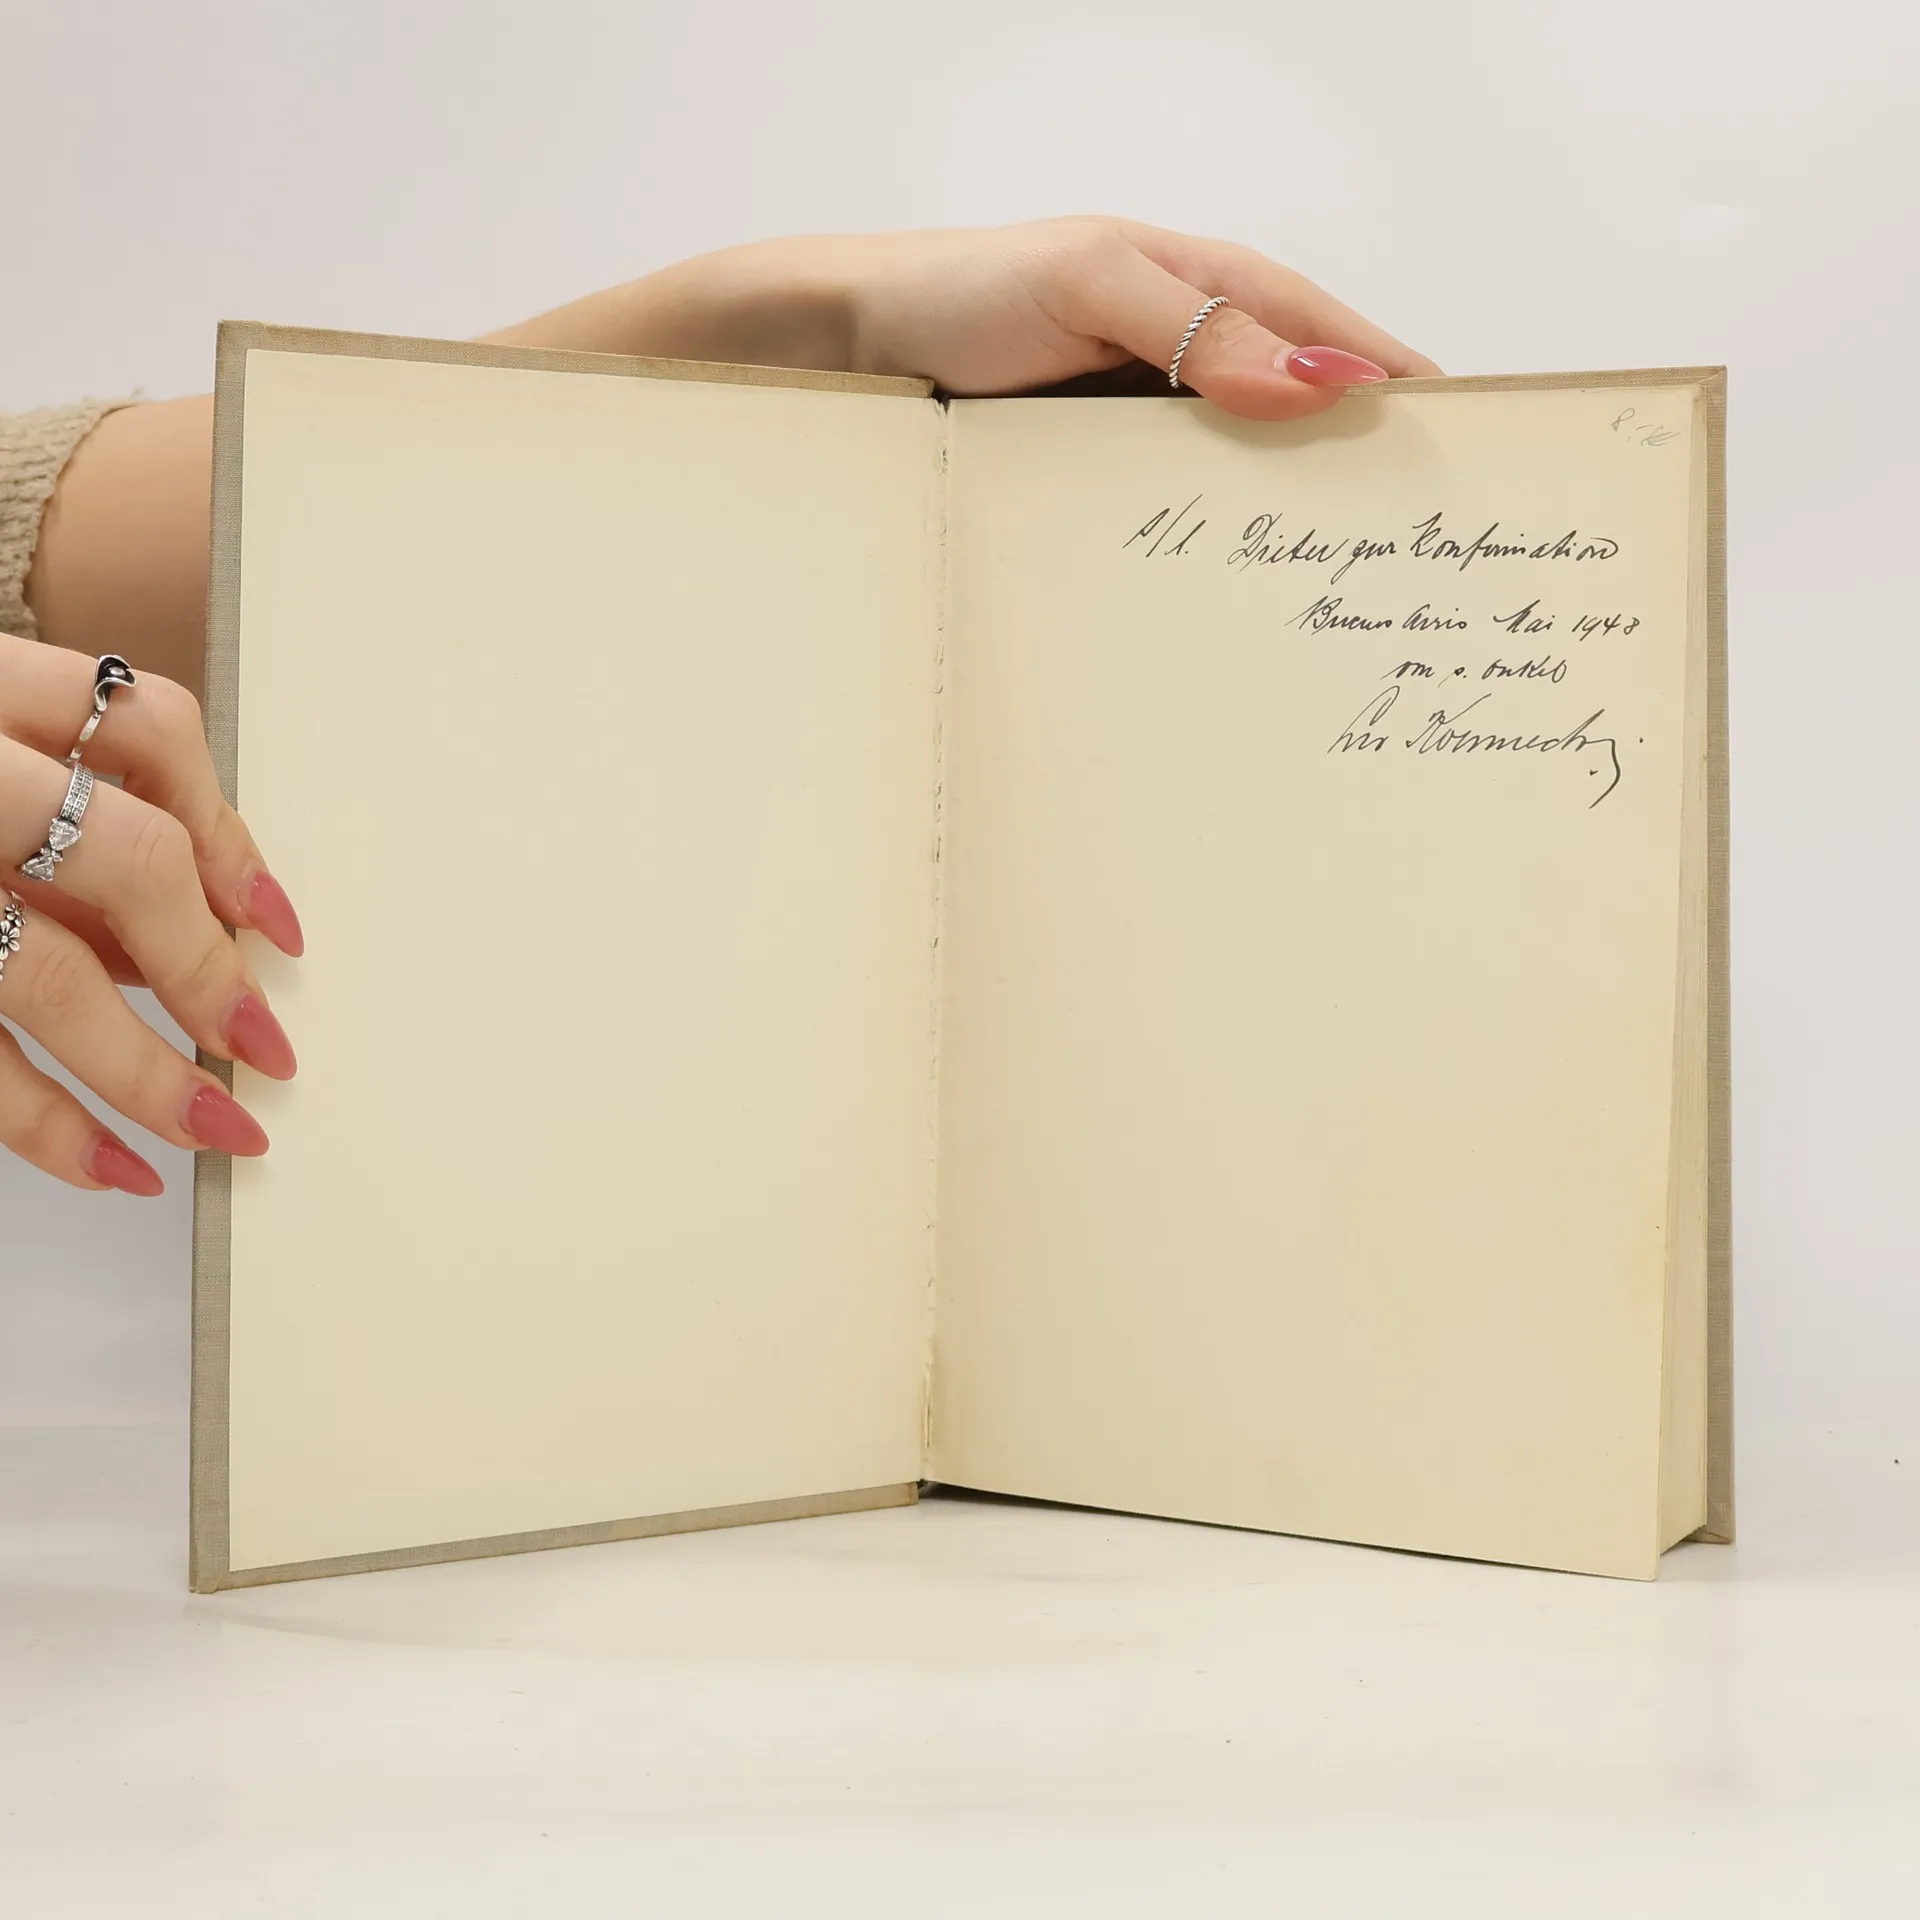 8.-
s/l. Dieter zur Konfirmation
Buenos Aires Mai 1948
von s. Onkel